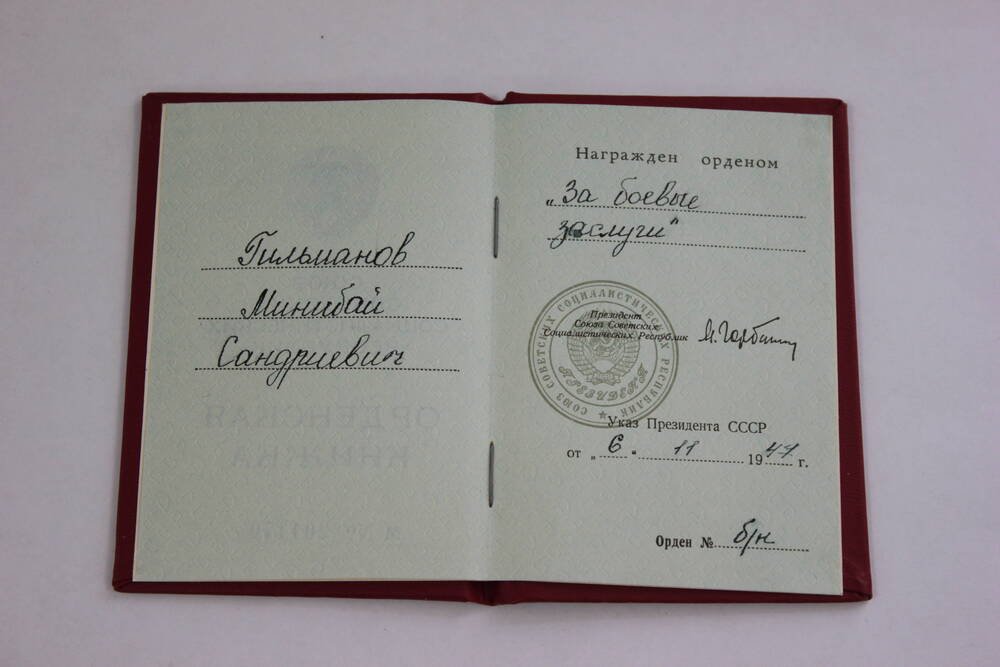 Гильманов
Минибай
Сандриевич
Награжден орденом
„За боевые
заслуги"
СОЮЗ СОВЕТСКИХ СОЦИАЛИСТИЧЕСКИХ РЕСПУБЛИК
ПРЕЗИДЕНТ
Президент
Союза Советских
Социалистических Республик
Указ Президента СССР
от „6" 11 1947 г.
Орден № б/н